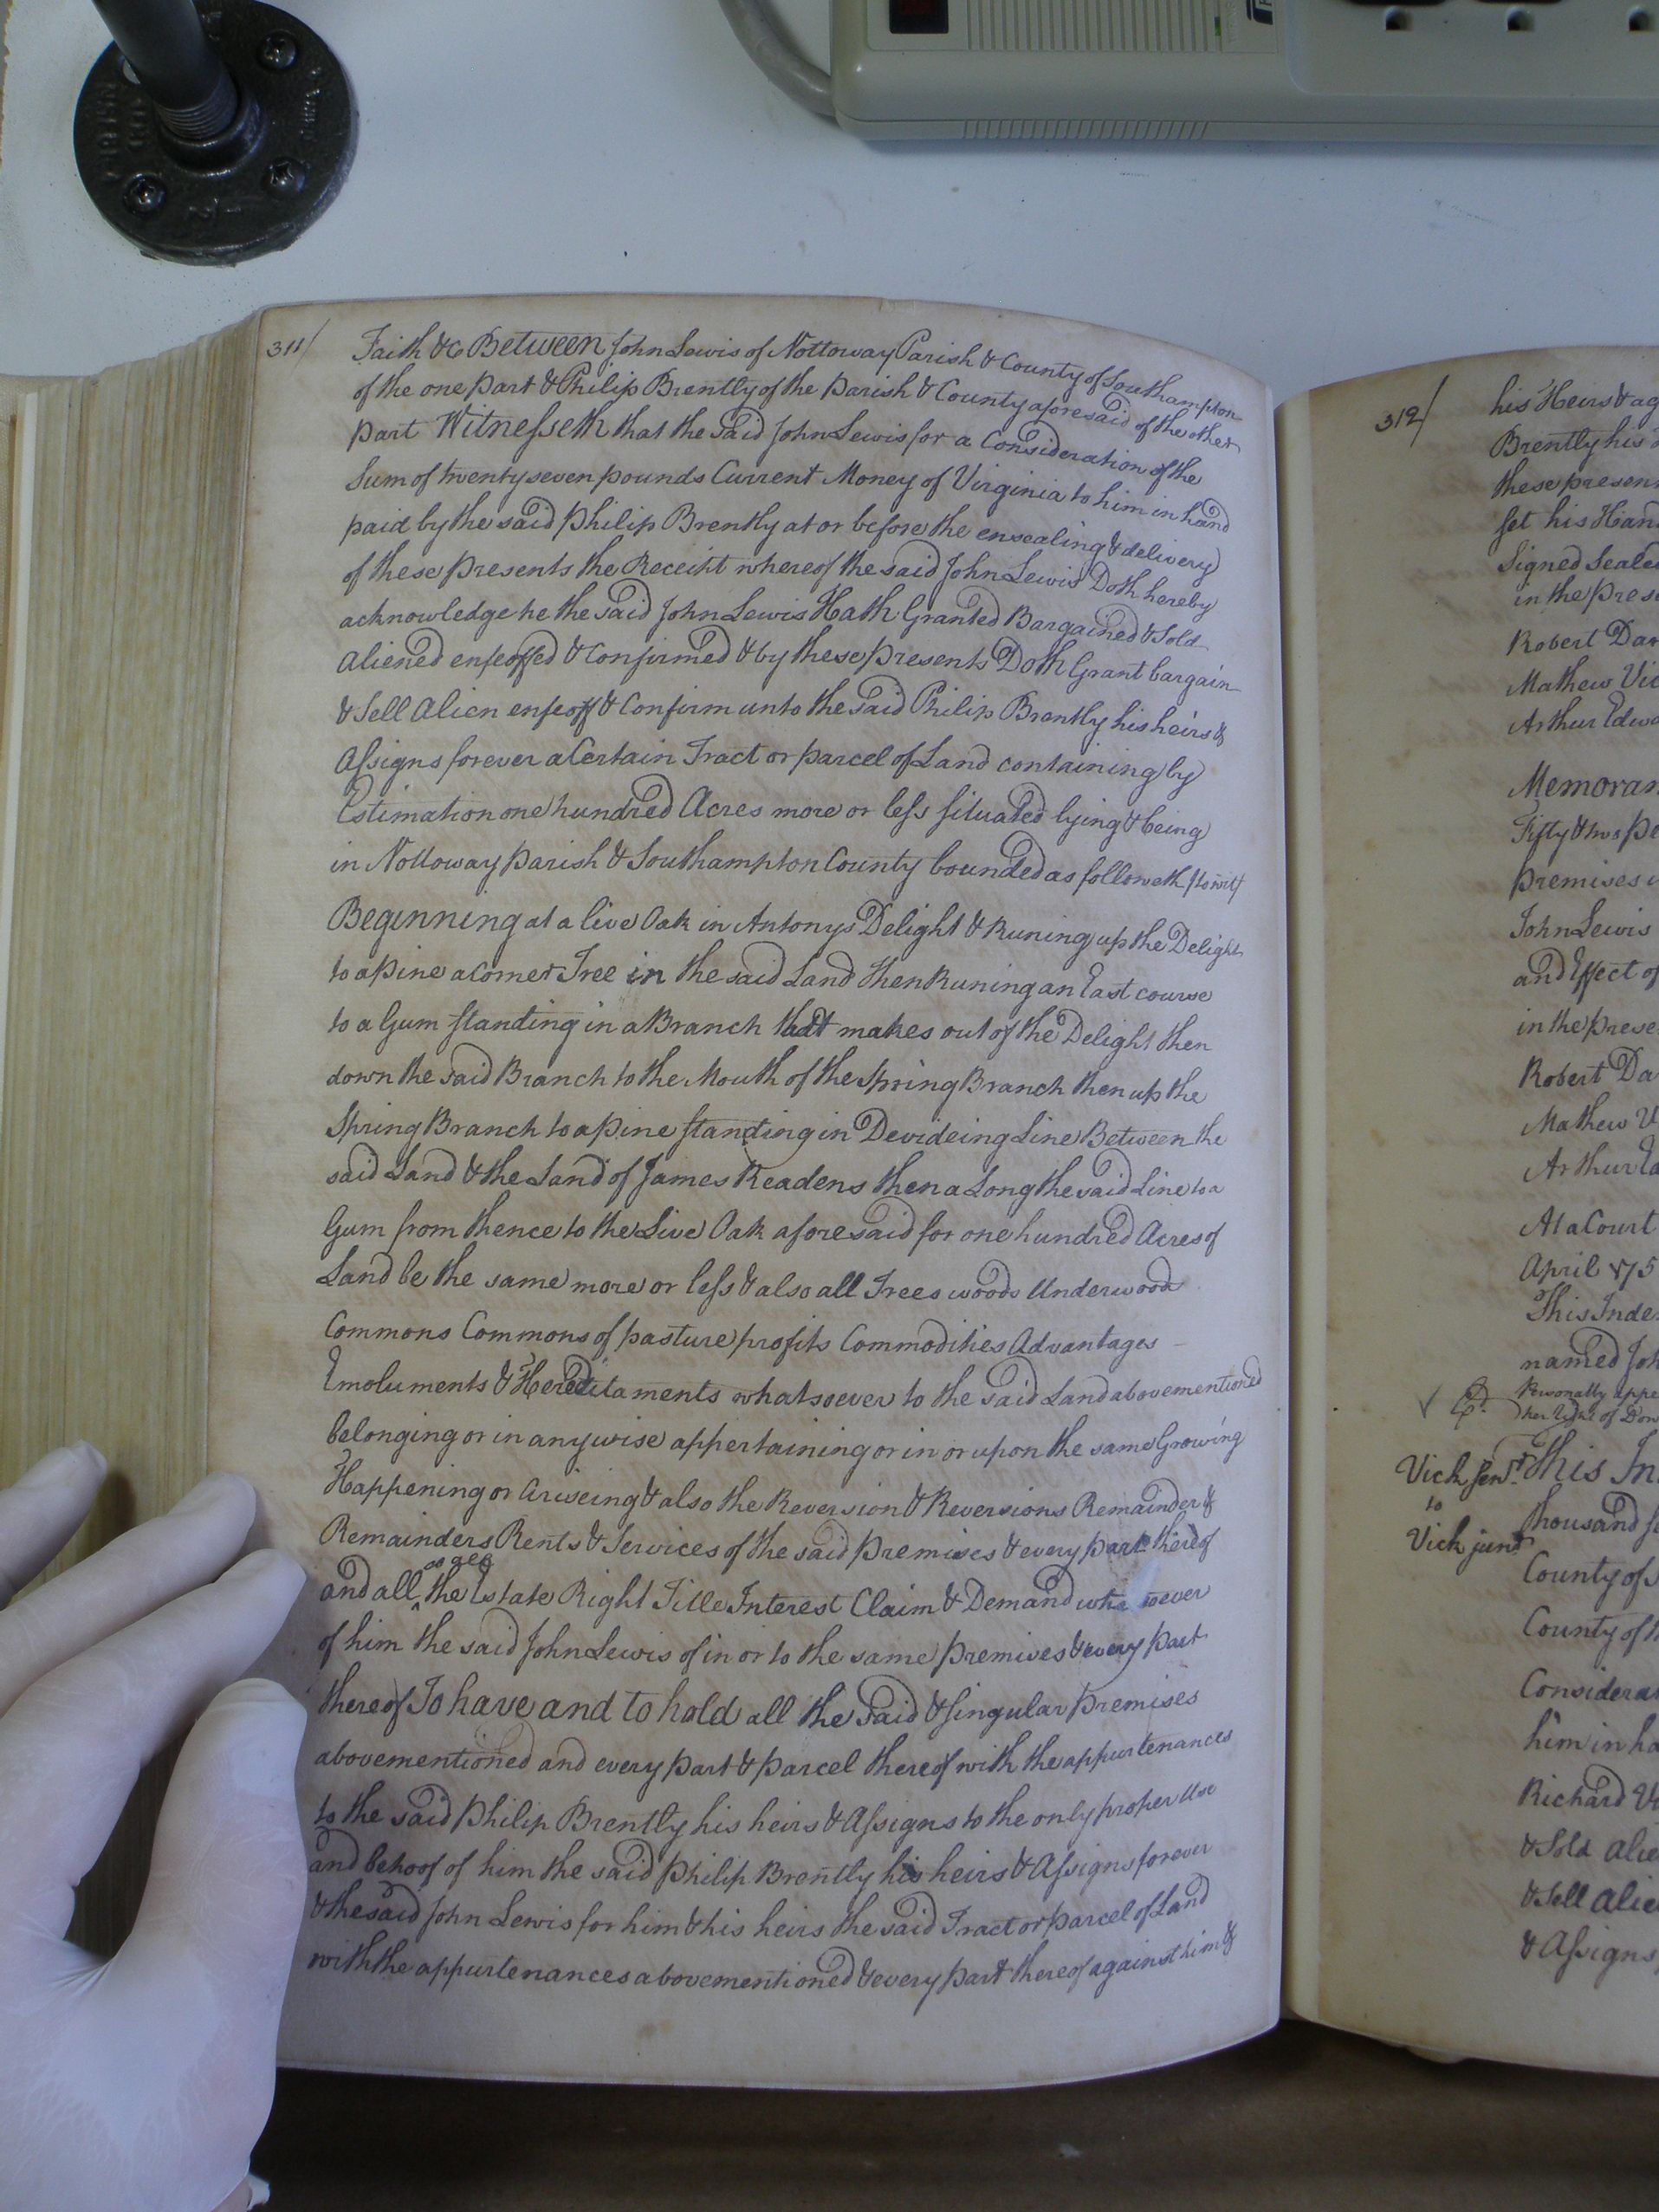 311/
Faith &c Between John Lewis of Nottoway Parish & County of Southampton
of the one part & Philip Brently of the parish & County aforesaid of the other
part Witnesseth that the said John Lewis for a Consideration of the
Sum of twenty seven pounds Current Money of Virginia to him in hand
paid by the said Philip Brently at or before the ensealing & delivery
of these presents the Receiht whereof the said John Lewis Doth hereby
acknowledge he the said John Lewis Hath Granted Bargained & Sold
aliened enfeoffed & Confirmed & by these presents Doth Grant bargain
& Sell Alien enfeoff & Confirm unto the said Philip Brently his heirs &
Assigns forever a Certain Tract or parcel of Land containing by
Estimation one hundred Acres more or less situated lying & being
in Nottoway parish & Southampton County bounded as followeth /towit/
Beginning at a live Oak in Antonys Delight & Runing up the Delight
to a pine a Corner Tree in the said Land then Runing an East course
to a Gum standing in a Branch that makes out of the Delight then
down the said Branch to the Mouth of the Spring Branch then up the
Spring Branch to a pine standing in Devideing Line Between the
said Land & the Land of James Readens then a Long the said Line to a
Gum from thence to the Live Oak aforesaid for one hundred Acres of
Land be the same more or less & also all Trees woods Underwoods
Commons Commons of pasture profits Commodities Advantages
Emoluments & Hereditaments whatsoever to the said Land abovementioned
belonging or in anywise appertaining or in or upon the same Growing
Happening or Ariseing & also the Reversion & Reversions Remainder &
Remainders Rents & Services of the said premises & every part thereof
and all the Estate Right Title Interest Claim & Demand soever
of him the said John Lewis of in or to the same premises & every part
thereof To have and to hold all the said & singular premises
abovementioned and every part & parcel thereof with the appurtenances
to the said Philip Brently his heirs & Assigns to the only proper Use
and behoof of him the said Philip Brently his heirs & Assigns forever
& the said John Lewis for him & his heirs the said Tract or parcel of Land
with the appurtenances abovementioned & every part thereof against him &
312/
his Heirs & ag
Brently his
these presen
set his Han
Signed Seale
in the pres
Robert Da
Mathew Vic
Arthur Edwa
Memoran
Fifty & two pe
premises
John Lewis
and Effect of
in the prese
Robert Da
Mathew V
Arthur Ed
At a Court
April 175
This Inde
named Joh
Personally appe
her right of Dow
Vick senr. This In
to
thousand s
Vick junr.
County of
County of
Considera
him in ha
Richard Vi
& Sold alie
& Sell alie
& Assigns